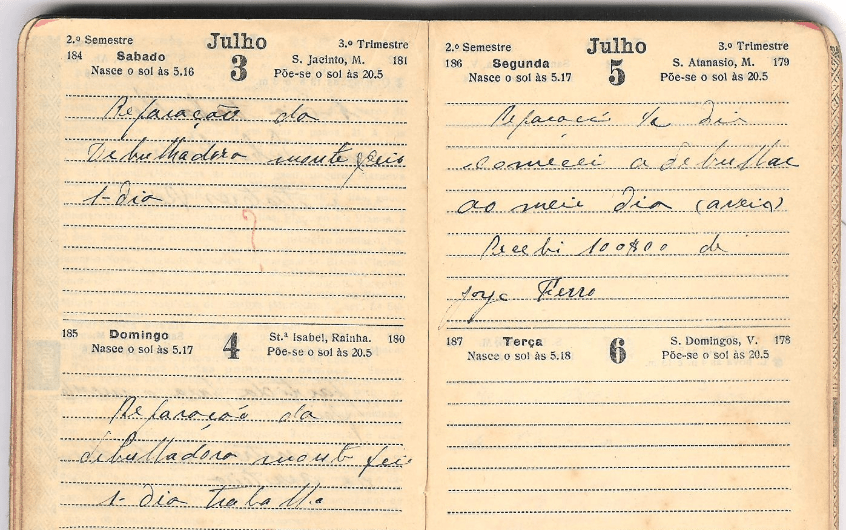 2.º Semestre Julho 3.º Trimestre
184 Sabado 3 S. Jacinto, M. 181
Nasce o sol às 5.16 Põe-se o sol às 20.5
Reparação da
Debulhadora monte feio
1- dia
?
185 Domingo 4 St.ª Isabel, Rainha. 180
Nasce o sol às 5.17 Põe-se o sol às 20.5
Reparação da
debulhadora monte feio
1- dia trabalho
2.º Semestre Julho 3.º Trimestre
186 Segunda 5 S. Atanasio, M. 179
Nasce o sol às 5.17 Põe-se o sol às 20.5
Reparação ½ dia
comecei a debulhar
ao meio dia (aveia)
Recebi 100$00 de
Jorge Ferro
187 Terça 6 S. Domingos, V. 178
Nasce o sol às 5.18 Põe-se o sol às 20.5